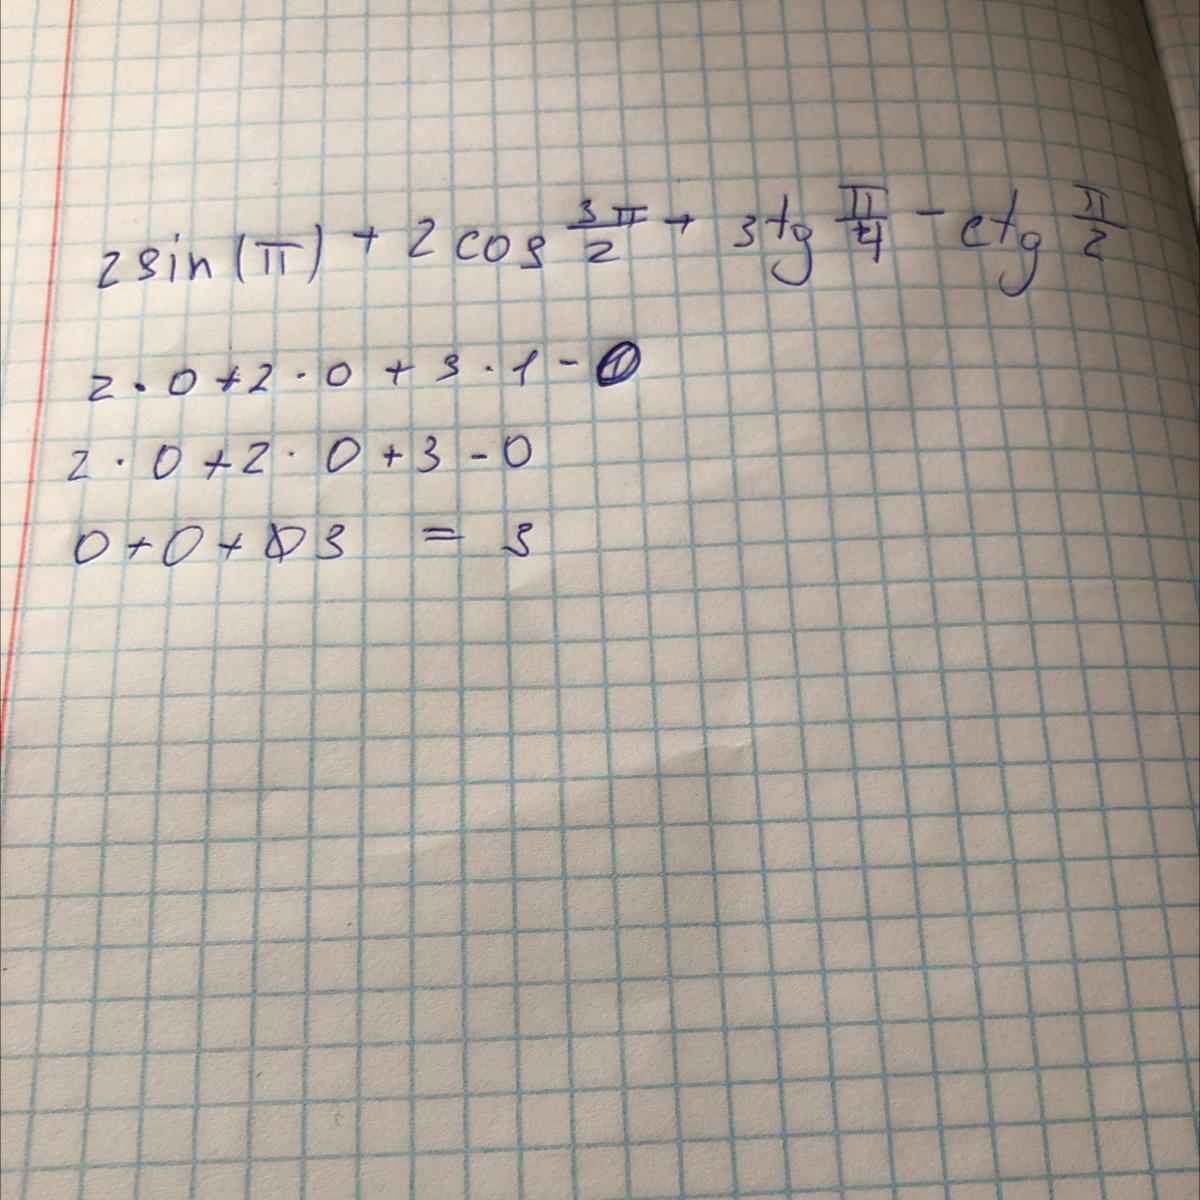 2 sin (π) + 2 cos 3π/2 + 3 tg π/4 - ctg π/2
2 · 0 + 2 · 0 + 3 · 1 - 0
2 · 0 + 2 · 0 + 3 - 0
0 + 0 + 3 = 3